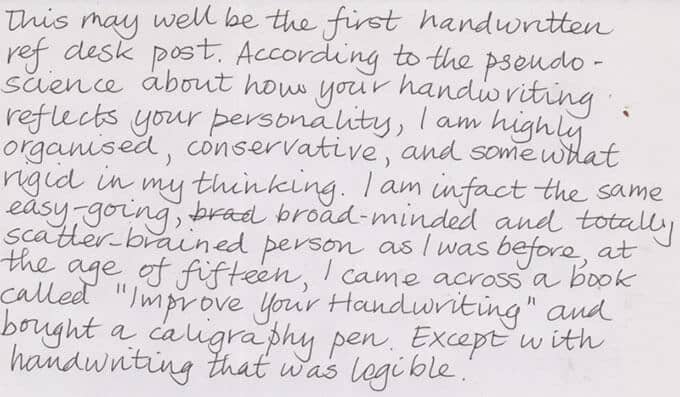 This may well be the first handwritten
ref desk post. According to the pseudo-
science about how your handwriting
reflects your personality, I am highly
organised, conservative, and somewhat
rigid in my thinking. I am infact the same
easy-going, brad broad-minded and totally
scatter-brained person as I was before, at
the age of fifteen, I came across a book
called "Improve Your Handwriting" and
bought a caligraphy pen. Except with
handwriting that was legible.